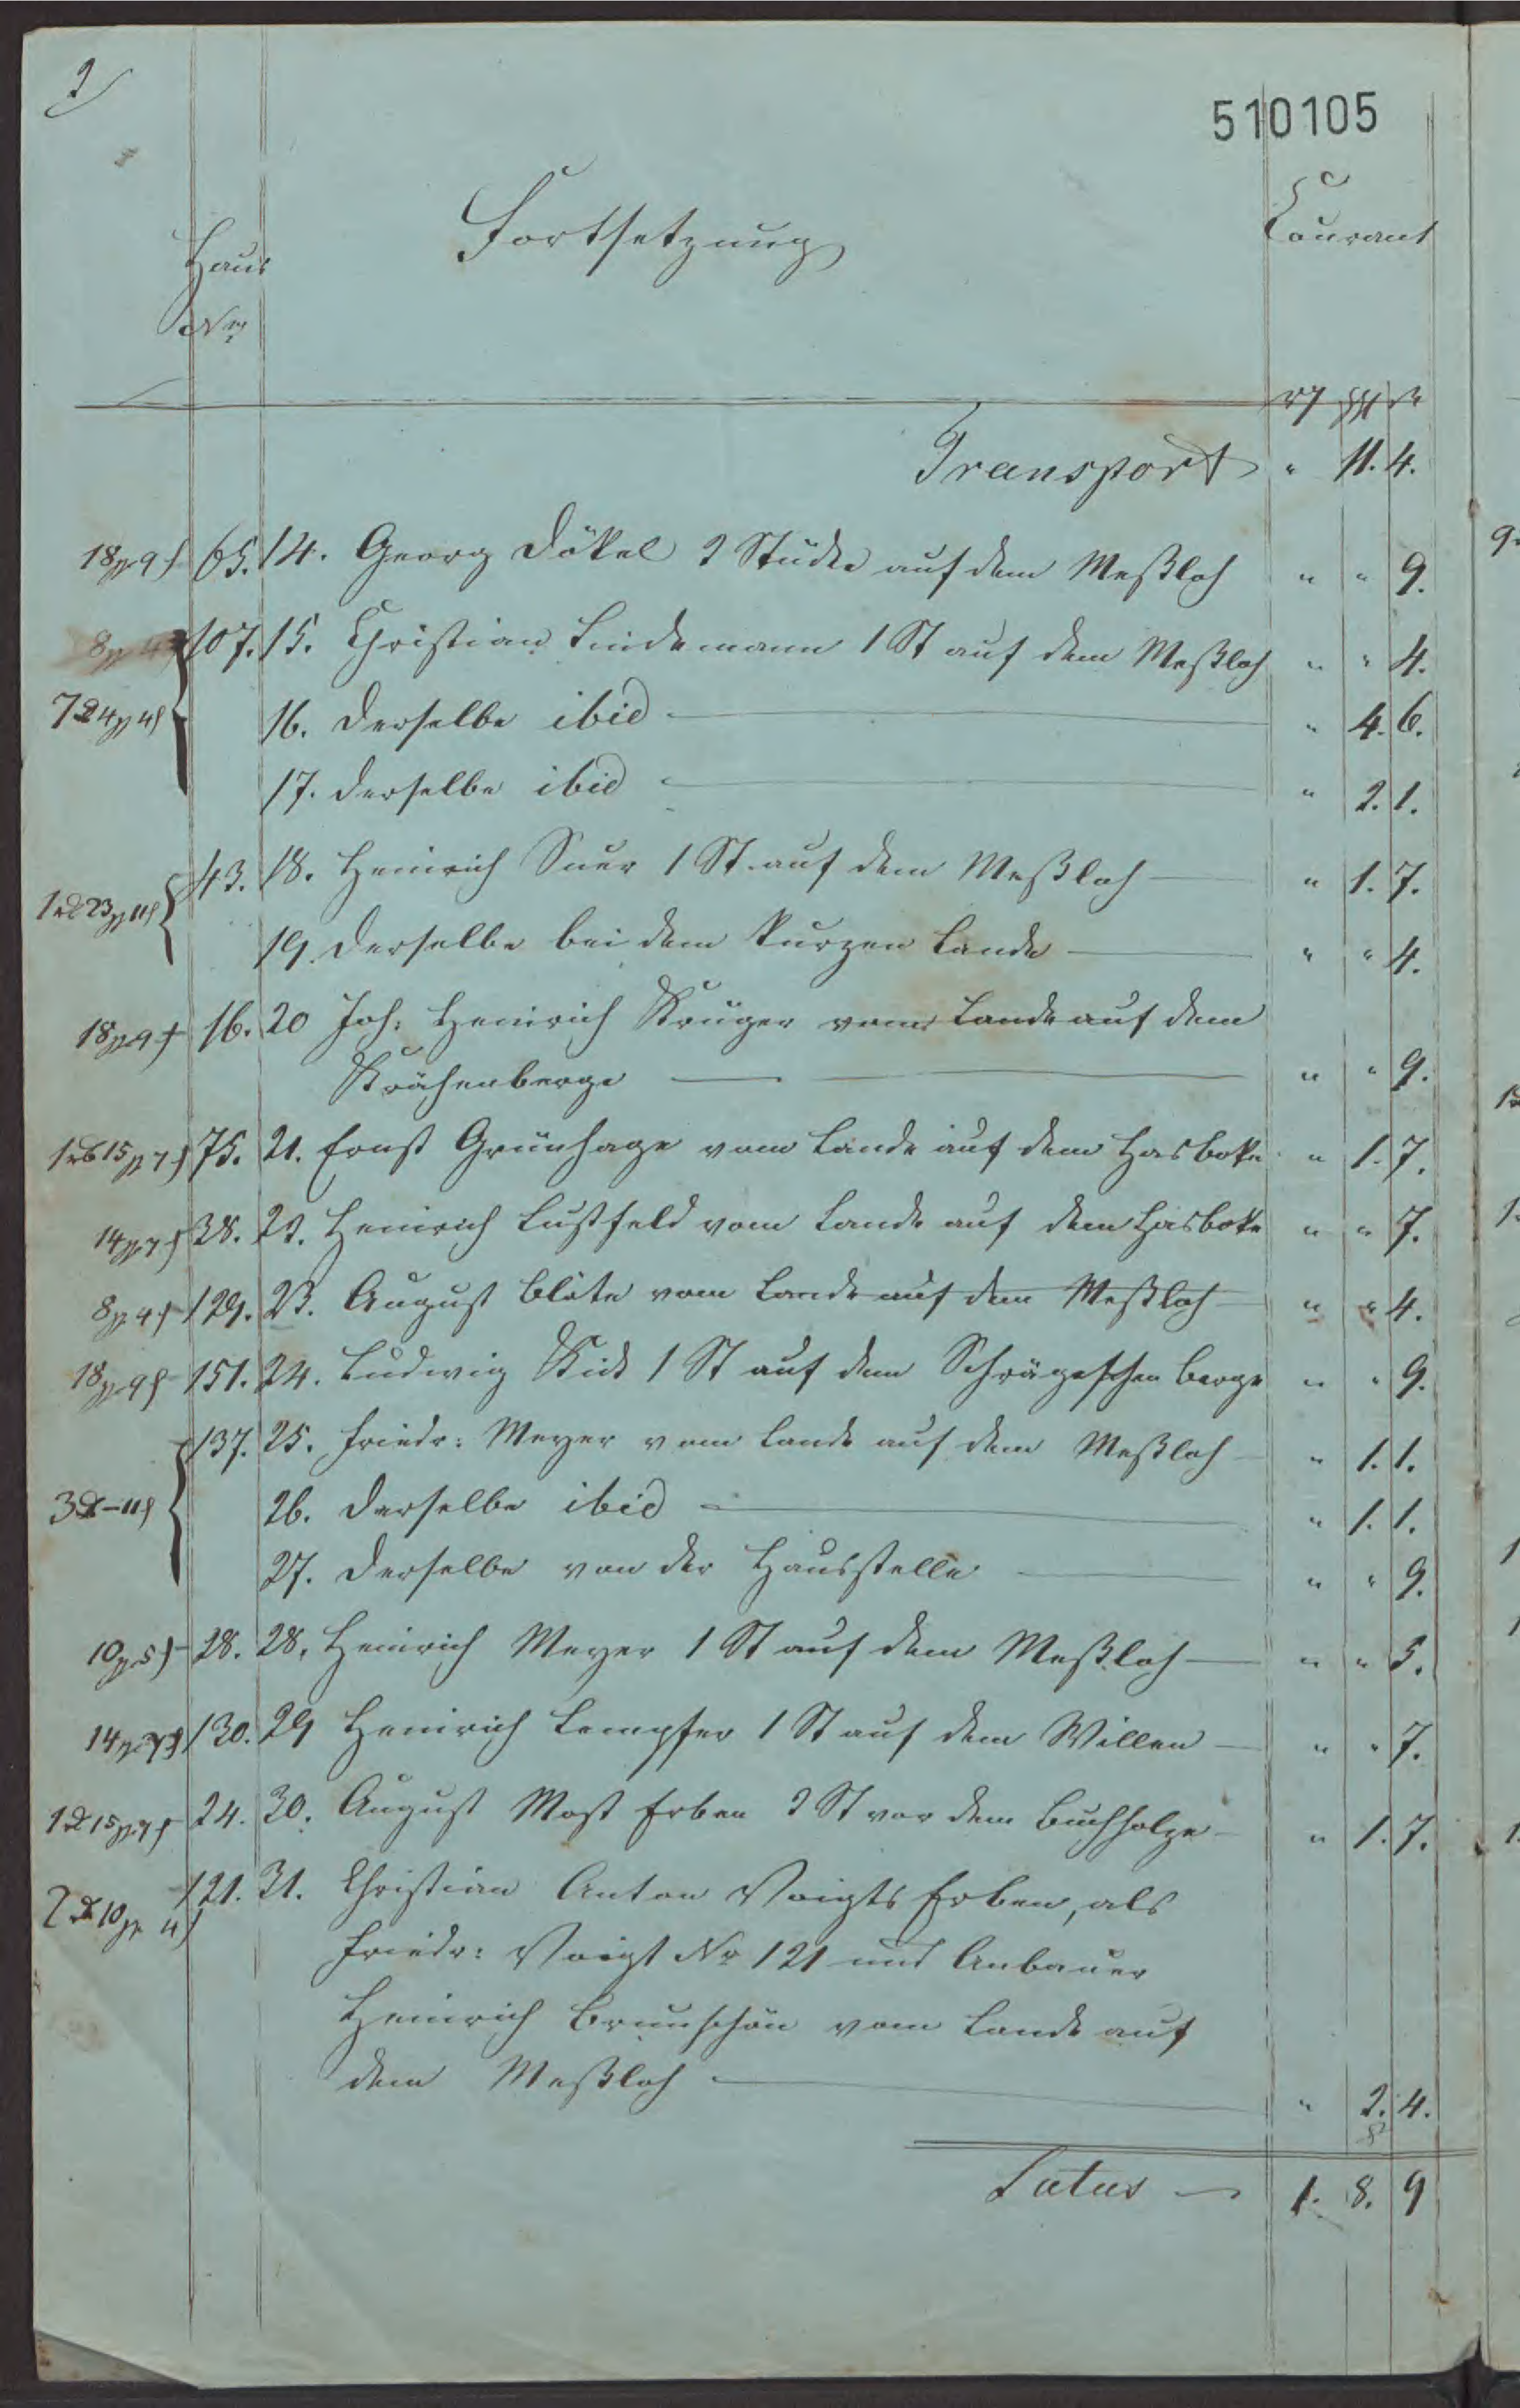 2
510105
Haus
Nro
Fortsetzung
Courant
Transport " 11. 4.
65. 14. Georg Dökel 2 Stücke auf dem Meßloh " " 9.
107. 15. Christian Lindemann 1 St auf dem Meßloh " " 4.
16. Derselbe ibid " 4. 6.
17. Derselbe ibid " 2. 1.
43. 18. Heinrich Suer 1 St. auf dem Meßloh " 1. 7.
19. Derselbe bei dem kurzen Lande " " 4.
16. 20 Joh: Heinrich Krüger vom Lande auf dem
Krähenberge " " 9.
75. 21. Ernst Grünhage vom Lande auf dem Hasbeke " 1. 7.
38. 22. Heinrich Lustfeld vom Lande auf dem Hasbeke " " 7.
129. 23. August Blöte vom Lande auf dem Meßloh " " 4.
151. 24. Ludwig Kick 1 St auf dem Schrägeschen Berge " " 9.
137. 25. Friedr: Meyer vom Lande auf dem Meßloh " 1. 1.
26. Derselbe ibid " 1. 1.
27. Derselbe von der Hausstelle " " 9.
28. 28. Heinrich Meyer 1 St auf dem Meßloh " " 5.
130. 29 Heinrich Lempfer 1 St auf dem Willen " " 7.
24. 30. August Most Erben 2 St vor dem Buchholze " 1. 7.
121. 31. Christian Anton Voigts Erben, als
Friedr: Voigt No 121 und Anbauer
Heinrich Brunschön vom Lande auf
dem Meßloh " 2. 4.
Latus 1. 8. 9